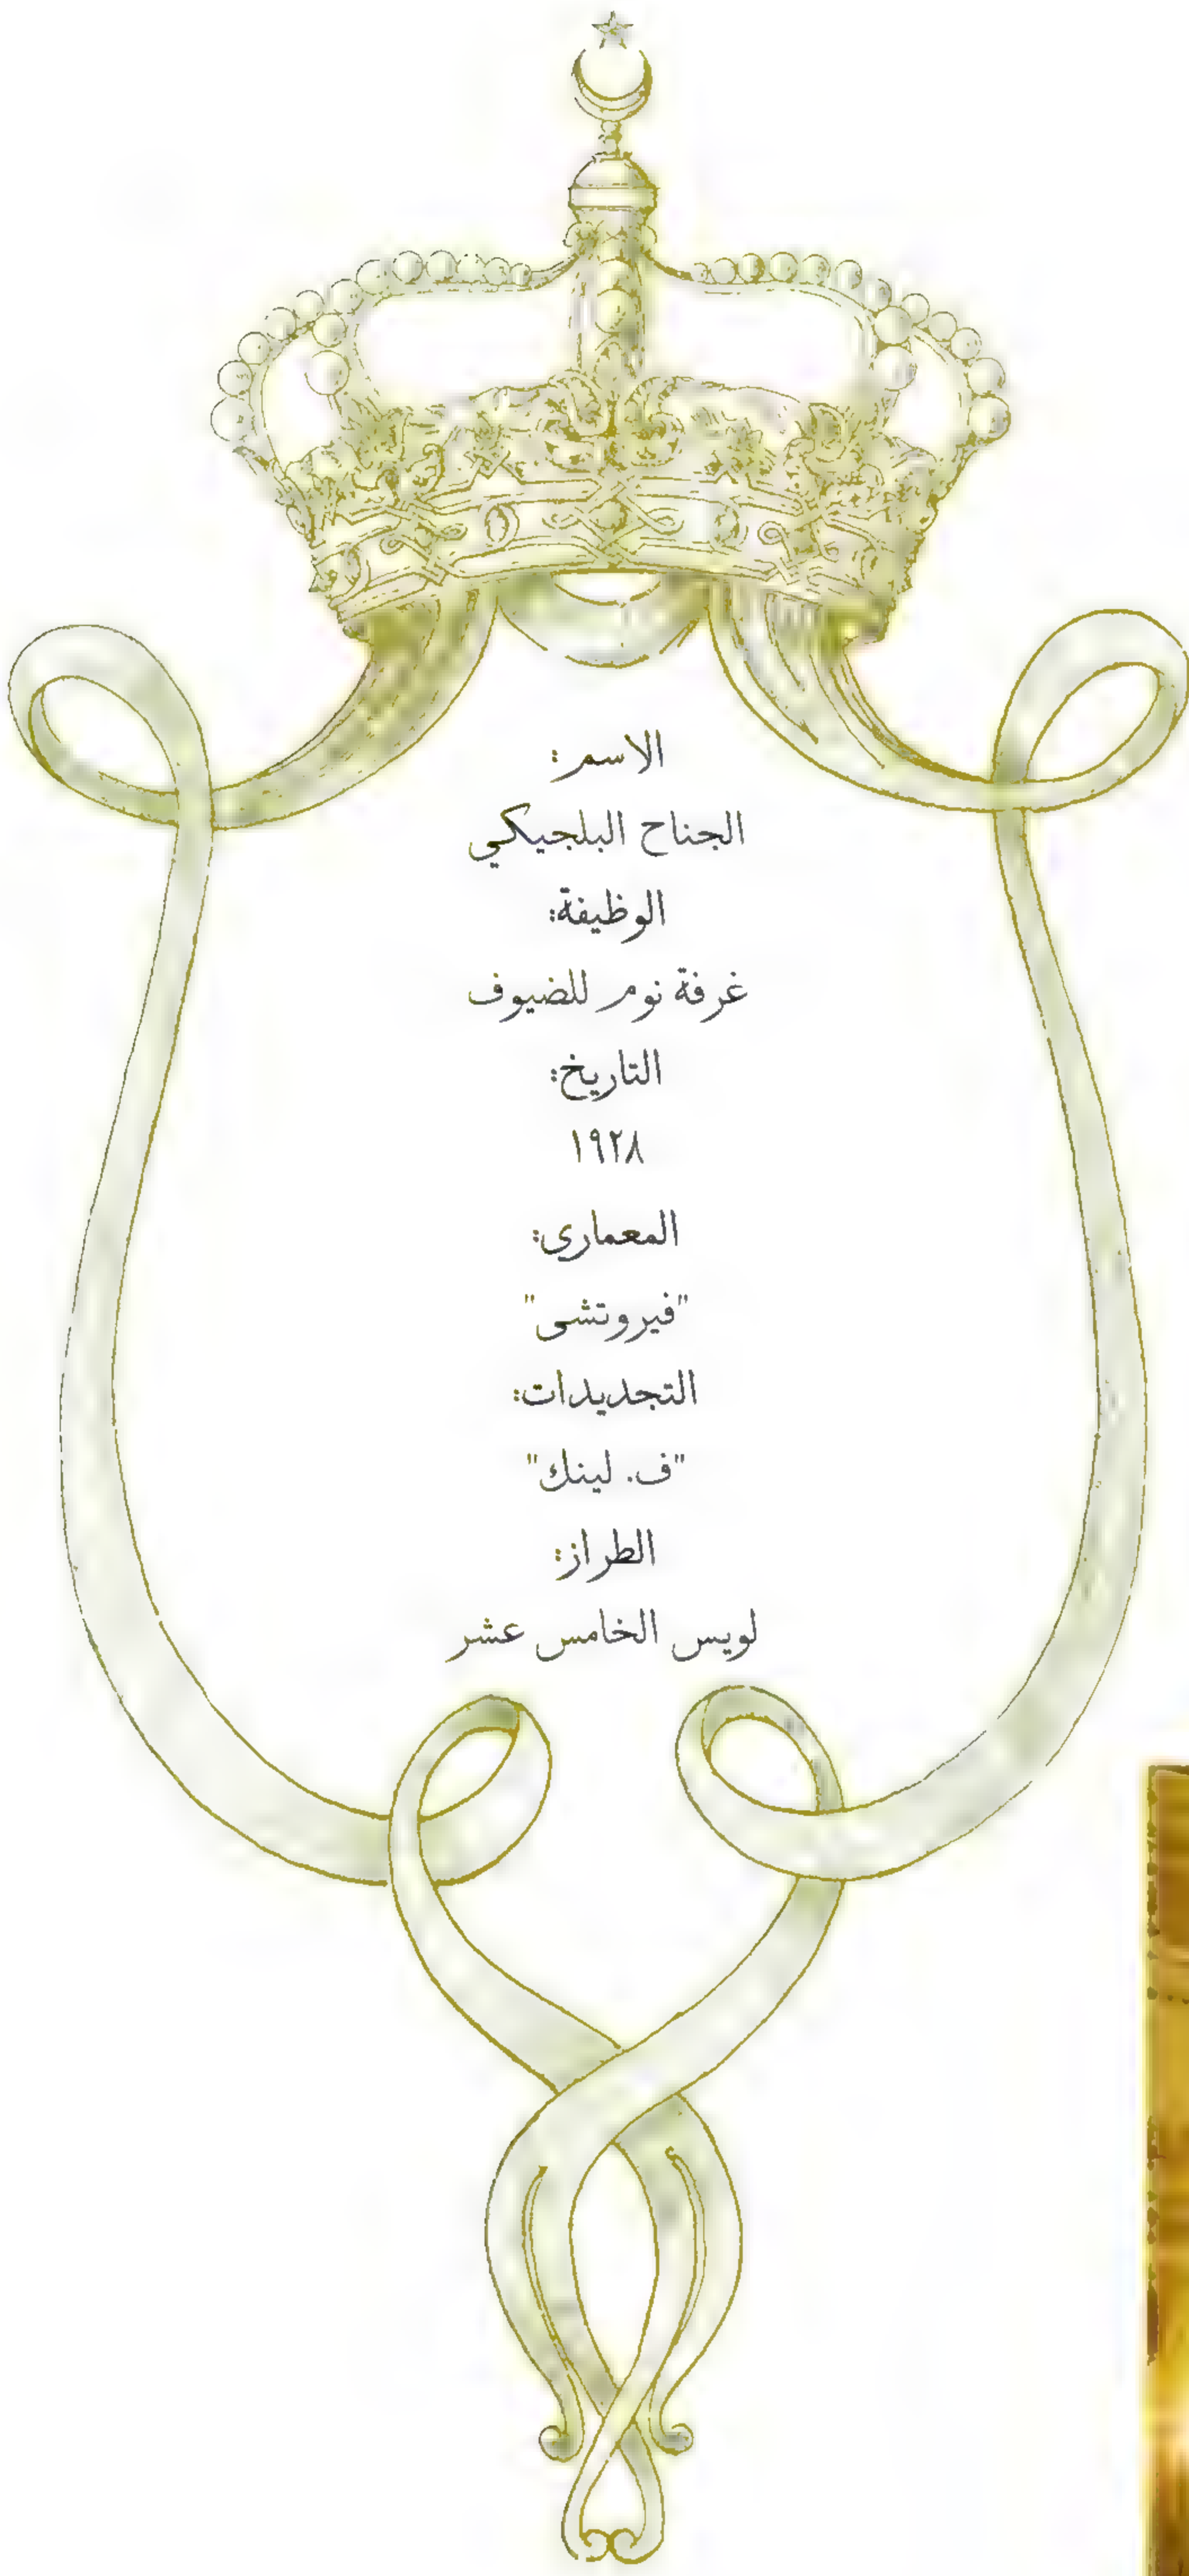 الاسم:
الجناح البلجيكي
الوظيفة:
غرفة نوم للضيوف
التاريخ:
١٩٢٨
المعماري:
"فيروتشى"
التجديدات:
"ف. لينك"
الطراز:
لويس الخامس عشر